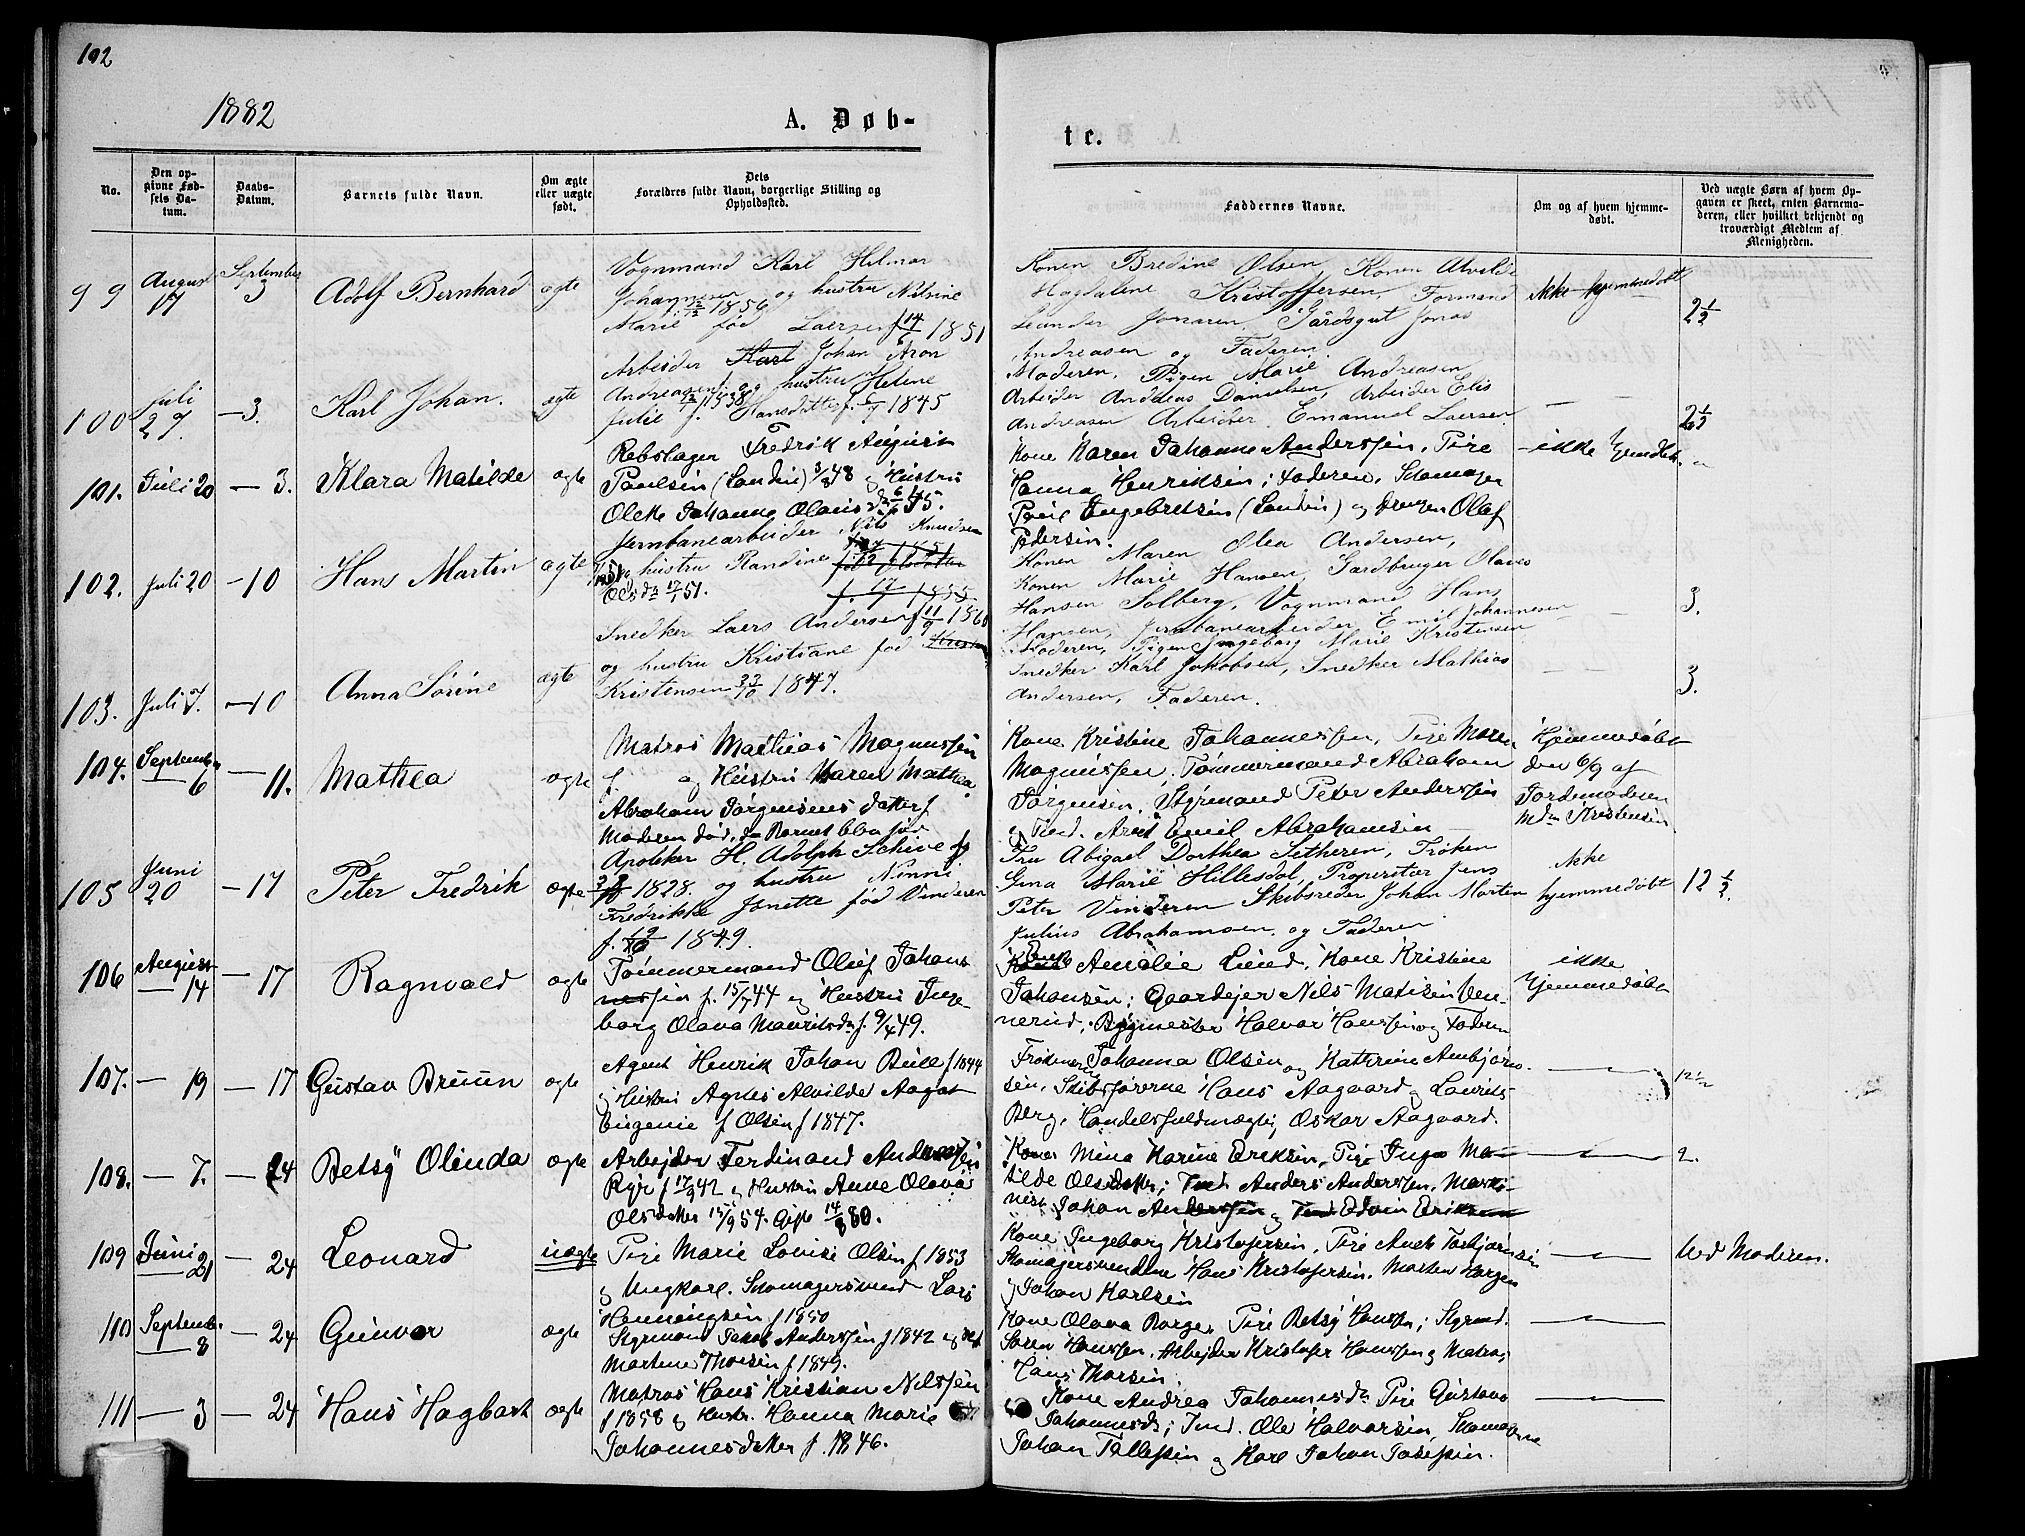 102
1882
A. Døb-
te.
No.
Den op-
givne Fød-
sels Da-
tum.
Daabs-
Datum.
Barnets fulde Navn.
Om ægte
eller uægte
født.
Dets
Forældres fulde Navn, borgerlige Stilling og
Opholdssted.
Faddernes Navne.
Om og af hvem hjemme-
døbt.
Ved uægte Børn af hvem Op-
gaven er skeet, enten Barnemo-
deren, eller hvilket bekjendt og
troværdigt Medlem af
Menigheden.
99
August
17
September
3
Adolf Bernhard
ægte
Vognmand Karl Hilmar
Johannesen og hustru Nilsine
Marie fød Laersen f 14/6 1851
Konen Bredine Olsen, Konen Alvilde
Magdalene Kristoffersen, Formand
Leander Jonasen, Gårdsgut Jonas
Andreasen og Faderen.
ikke hjemmedøbt
2 1/2
100
Juli
29.
— 3.
Karl Johan.
ægte
Arbeider Karl Johan Aron
Andreasen og hustru Helene
Julie f. Hansdatter 1845
Moderen, Pigen Marie Andreasen
Arbeider Andreas Danielsen, Arbeider Elis
Andreasen Arbeider Emanuel Laersen
— —
2 1/2
101.
Juli 20
— 3.
Klara Matilde
ægte
Rebslager Fredrik August
Paulsen (Landin) 3/8 48 og Hustru
Olette Johanne Olausd 45.
Kone Karen Johanne Anderssen, Pige
Hanna Henriksen; Faderen, Skomager
Engebretsen (Landin) og Drengen Olaf
Pedersen.
— ikke hjemdøbt.
102.
Juli 20
— 10
Hans Martin
ægte
Jernbanearbeider Nils Knudsen
og hustru Randine
Olsda 17/1 51.
Konen Maren Olea Andersen,
Konen Marie Hansen, Gardbruger Olaves
Hansen Solberg, Vognmand Hans
Hansen, Jernbanearbeider Emil Johannesen
—
3.
103.
Juli 7.
— 10
Anna Sørine
ægte
Snedker Laers Andersen f 11/9 1860
og hustru Kristiane fød
Kristensen 23/10 1847.
Moderen, Pigen Ingeborg Marie Kristensen
Snedker Karl Jakobsen, Snedker Mathias
Andersen, Faderen.
— —
3.
104.
September
6
— 11.
Mathea
ægte
Matros Mathias Magnussen
f. og Hustru Maren Mathea
Abraham Jørgensens datter f
Moderen død, da Barnet blev før
Kone Kristine Johannessen, Pige Maren
Magnussen; Tømmermand Abraham
Jørgensen, Styrmand Peter Anderssen
og Emil Abrahamsen
Hjemmedøbt
den 6/9 af
Jordemoderen
Mdm Kristensen
105
Juni
20
— 17
Peter Fredrik
ægte
Apoteker H. Adolph Schive f
1828. og hustru Ninni
Fredrikke Jonette fød Vinderen
f. 1849.
Fru Abigael Dorthea Setheren, Frøken
Gina Marie Hillesdal, Proprietær Jens
Peter Vinderen Skibsreder Johan Marten
Julius Abrahamsen og Faderen
ikke
hjemmedøbt
12 1/2.
106
August
— 14
— 17
Ragnvald
ægte
Tømmermand Oluf Johans
nessen f. 15/7 44 og Hustru Inge-
borg Olava Mauritsda f. 9/4 49.
Enke Amalie Lund, Kone Kristine
Johansen; Gaardejer Nils Matisen Ven-
nerud, Bygmester Halvor Hanssen og Faderen
ikke
hjemmedøbt
107.
— 19
— 17
Gustav Bruun
ægte
Agent Henrik Johan Bull f 1844
og Hustru Agnes Alvilde Aagot
Eugenie f Olsen f 1847.
Frøknerne Johanna Olsen og Kathrine Ambjørn-
sen, Skibsførerne Hans Aagaard og Laurits
Berg, Handelsfuldmægtig Oskar Aagaard.
—
12 1/2
108.
— 7.
— 24
Betsy Olinda
ægte
Arbejder Ferdinand Andreassen
Ryr f 17/9 42 og Hustru Anne Olava
Olsdatter 15/9 54. Gift 14/8 80.
Kone Mina Karine Eriksen, Pige Inga Ma-
tilde Olsdatter; Anders Anderssen, Marti-
nius Johan Anderssen og Edvin Eriksen
—
2.
109
Juni
21
— 24
Leonard
uægte
Pige Marie Lovise Olsen f 1853
og Ungkarl. Skomagersvend Lars
Henningsen f 1850
Kone Ingeborg Kristofersen, Pige Anet Torbjørnsen
Skomagersvendene Hans Kristofersen, Morten Horgen
og Johan Karlsen
—
Ved Moderen.
110
Septemb.
8
— 24
Gunvor
ægte
Styrmand Jakob Anderssen f 1842 og Hst
Martine Thorsen f 1849.
Kone Olava Borge, Pige Betsy Hanssen; Styrmd.
Søren Hanssen, Arbejder Kristofer Hanssen og Matros
Hans Thorsen.
—
111
— 3
— 24
Hans Hagbart
ægte
Matros Hans Kristian Nilssen
f 1858 og Hustr. Hanna Marie
Johannesdatter f. 1846.
Kone Andrea Johannesda Pige Gustava
Johannesd; Ole Halvorsen, Skomagerne
Johan Tollefsen og Karl Johan Josefsen.
—